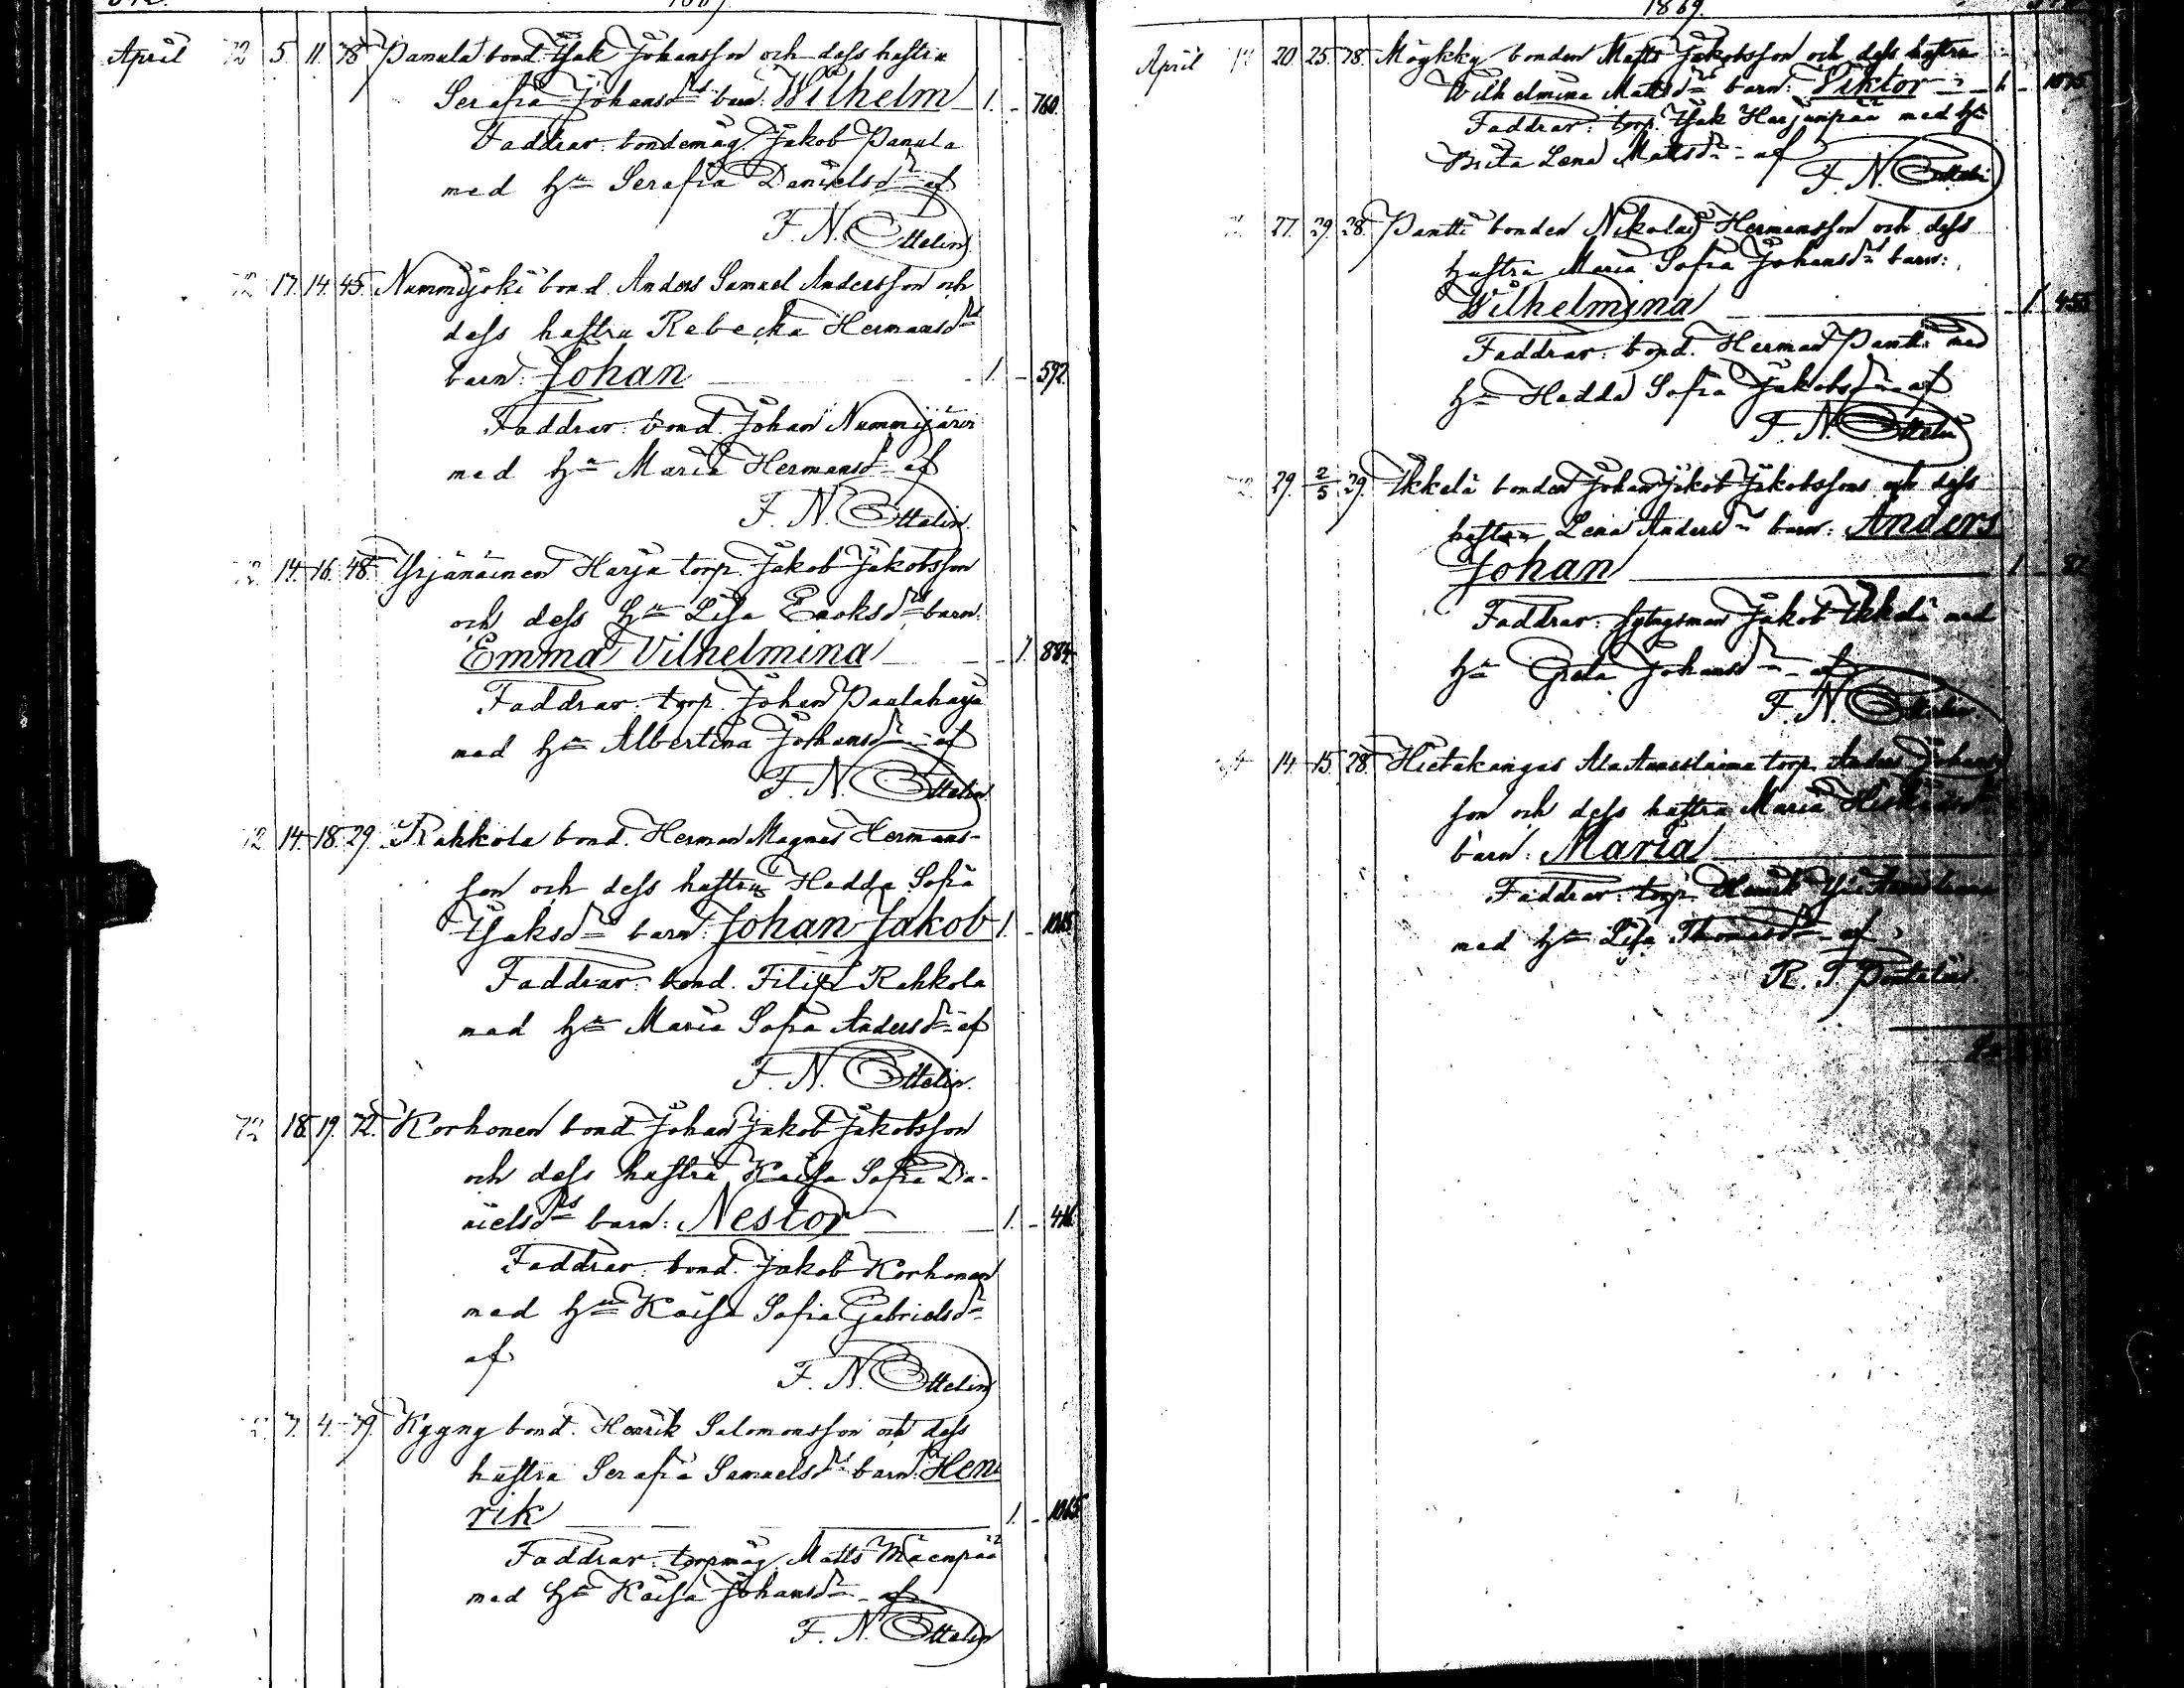 1869.
April 72 5 11. 78 Panula bond. Isak Johansson och dess hustru
Serafia Johansdrs barn: Wilhelm 1. 760.
Faddrar: bondemåg. Jakob Panula
med hu Serafia Danielsdr af
F. N. Ottelin
72 17. 14. 45. Nummijoki bond. Anders Samuel Andersson och
dess hustru Rebecka Hermansdrs
barn: Johan 1. 592.
Faddrar: bond. Johan Nummijärvi
med hu Maria Hermansdr af
F. N. Ottelin.
72 14. 16. 48. Yrjänäinen Harja torp. Jakob Jakobsson
och dess hu Lisa Enoksdrs barn:
Emma Vilhelmina 1. 884
Faddrar: torp. Johan Paulaharju
med hu Albertina Johansdr af
F. N. Ottelin
72 14. 18. 29. Rahkola bond. Herman Magnus Hermans-
son och dess hustru Hedda Sofia
Isaksdrs barn: Johan Jakob 1.
Faddrar: bond. Filip Rahkola
med hu Maria Sofia Andersdr af
F. N. Ottelin.
72 18. 19. 72. Korhonen bond. Johan Jakob Jakobsson
och dess hustru Kaisa Sofia Da-
nielsdrs barn: Nestor 1. 416.
Faddrar: bond. Jakob Korhonen
med hu Kaisa Sofia Gabrielsdr
af
F. N. Ottelin
7. 4. 79. Kyyny bond. Henrik Salomonsson och dess
hustru Serafia Samuelsdrs barn: Hen
rik 1. 1065.
Faddrar: torpmåg Matts Mäenpää
med hu Kaisa Johansdr af
F. N. Ottelin
1869.
April 20. 25. 78. Möykky bonden Matts Jakobsson och dess hustru
Wilhelmina Mattsdrs barn: Viktor 1.
Faddrar: torp. Isak Harjunpää med hu
Brita Lena Mattsdr af
F. N. Ottelin
27. 29. 28. Pantti bonden Nikolai Hermansson och dess
hustru Maria Sofia Johansdrs barn:
Wilhelmina 1.
Faddrar: bond. Herman Pantti med
hu Hedda Sofia Jakobsdr af
F. N. Ottelin
72 29. 2/5 29. Ikkelä bonden Johan Jakob Jakobssons och dess
hustru Lena Andersdrs barn: Anders
Johan 1
Faddrar: sytngsman Jakob Ikkelä med
hu Greta Johansdr af
F. N. Ottelin.
14. 15. 28. Hietakangas Ala Annesluoma torp. Anders Johans-
son och dess hustru Maria
barn: Maria
Faddrar: torp. Henrik
med hu Lisa Thomasdr af
R. F.